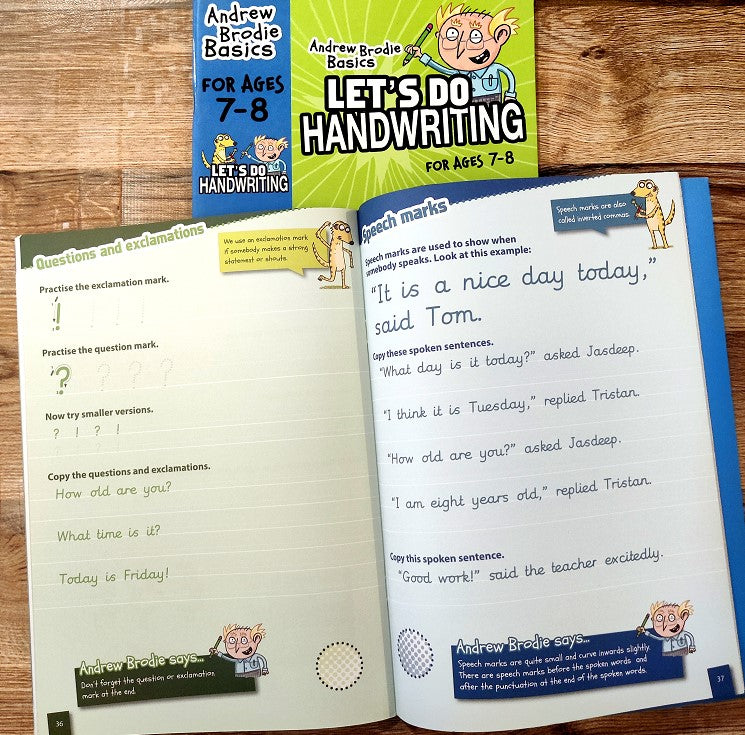 Andrew
Brodie
Basics
FOR AGES
7-8
LET'S DO
HANDWRITING
Andrew Brodie
Basics
LET'S DO
HANDWRITING
FOR AGES 7-8
Questions and exclamations
We use an exclamation mark
if somebody makes a strong
statement or shouts.
Practise the exclamation mark.
! ! ! !
Practise the question mark.
? ? ? ?
Now try smaller versions.
? ! ? !
Copy the questions and exclamations.
How old are you?
What time is it?
Today is Friday!
Andrew Brodie says...
Don't forget the question or exclamation
mark at the end.
36
Speech marks
Speech marks are also
called inverted commas.
Speech marks are used to show when
somebody speaks. Look at this example:
"It is a nice day today,"
said Tom.
Copy these spoken sentences.
"What day is it today?" asked Jasdeep.
"I think it is Tuesday," replied Tristan.
"How old are you?" asked Jasdeep.
"I am eight years old," replied Tristan.
Copy this spoken sentence.
"Good work!" said the teacher excitedly.
Andrew Brodie says...
Speech marks are quite small and curve inwards slightly.
There are speech marks before the spoken words and
after the punctuation at the end of the spoken words.
37